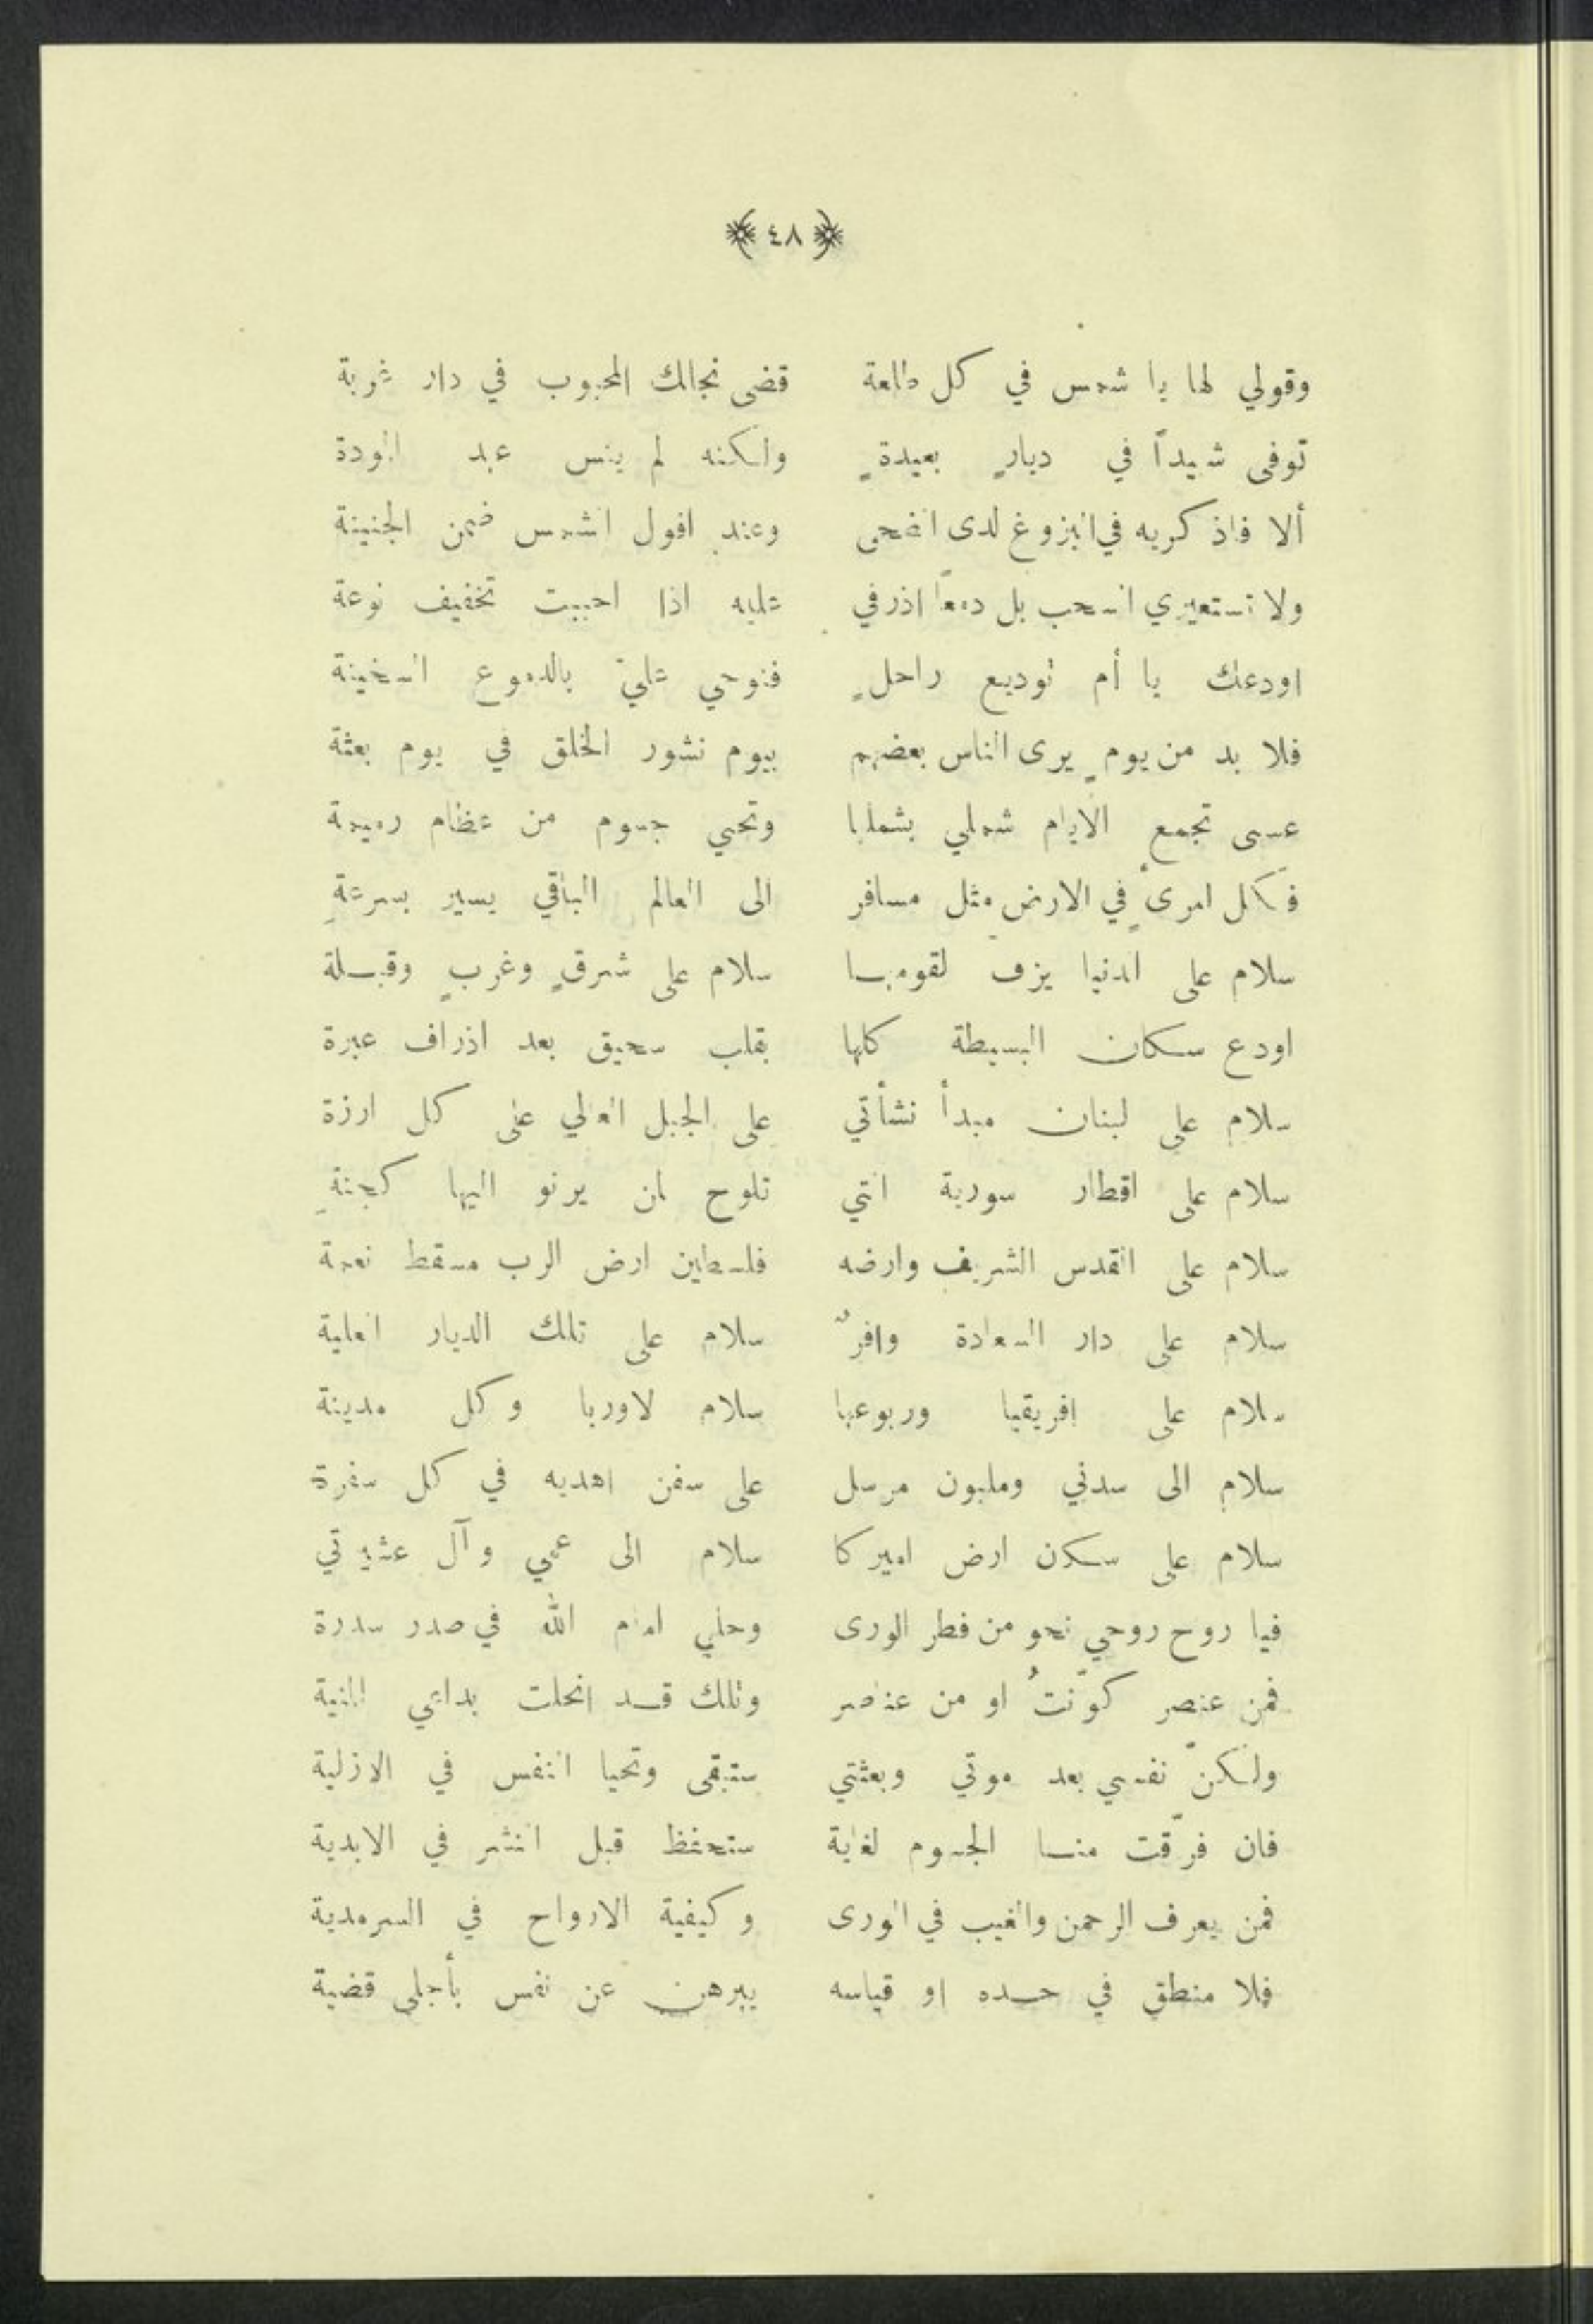 ٤٨
وقولي لها يا شمس في كل طلعة قضى نجالك المحبوب في دار غربة
توفى شهيداً في ديارٍ بعيدةٍ ولكنه لم ينس عهد المودة
ألا فاذكريه في البزوغ لدى الضحى وعند افول الشمس ضمن الجنينة
ولا تستعيري السحب بل دمعاً اذرفي عليه اذا احببت تخفيف لوعة
اودعك يا أم توديع راحلٍ فنوحي عليّ بالدموع السخينة
فلا بد من يومٍ يرى الناس بعضهم بيوم نشور الخلق في يوم بعثة
عسى تجمع الايام شملي بشملها وتحيي جسوم من عظام رميمة
فكل امرىءٍ في الارض مثل مسافر الى العالم الباقي يسير بسرعةِ
سلام على الدنيا يزف لقومها سلام على شرقٍ وغربٍ وقبلة
اودع سكان البسيطة كلها بقلب سحيق بعد اذراف عبرة
سلام على لبنان مبدأ نشأتي على الجبل العالي على كل ارزة
سلام على اقطار سورية التي تلوح لمن يرنو اليها كجنةِ
سلام على القدس الشريف وارضه فلسطين ارض الرب مسقط نعمة
سلام على دار السعادة وافرٌ سلام على تلك الديار العلية
سلام على افريقيا وربوعها سلام لاوربا وكل مدينة
سلام الى سدني وملبون مرسل على سفن اهديه في كل سفرة
سلام على سكان ارض اميركا سلام الى عمي وآل عشيرتي
فيا روح روحي نحو من فطر الورى وحلي امام الله في صدر سدرة
فمن عنصر كوّنتُ او من عناصر وتلك قد انحلت بداعي المنية
ولكنّ نفسي بعد موتي وبعثتي ستبقى وتحيا النفس في الازلية
فان فرّقت منا الجسوم لغاية ستحفظ قبل النشر في الابدية
فمن يعرف الرحمن والغيب في الورى وكيفية الارواح في السرمدية
فلا منطق في حده او قياسه يبرهن عن نفس بأجلى قضية